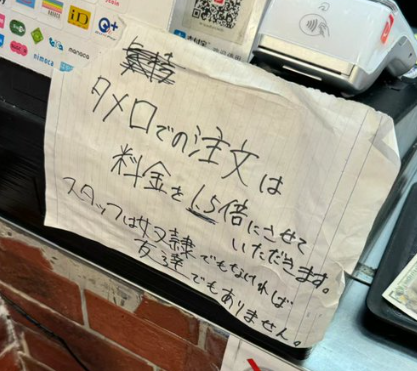 iD
Q+
nimoca
manaca
タメ口での注文は
料金を1.5倍にさせて
いただきます。
スタッフは奴隷でもなければ
友達でもありません。